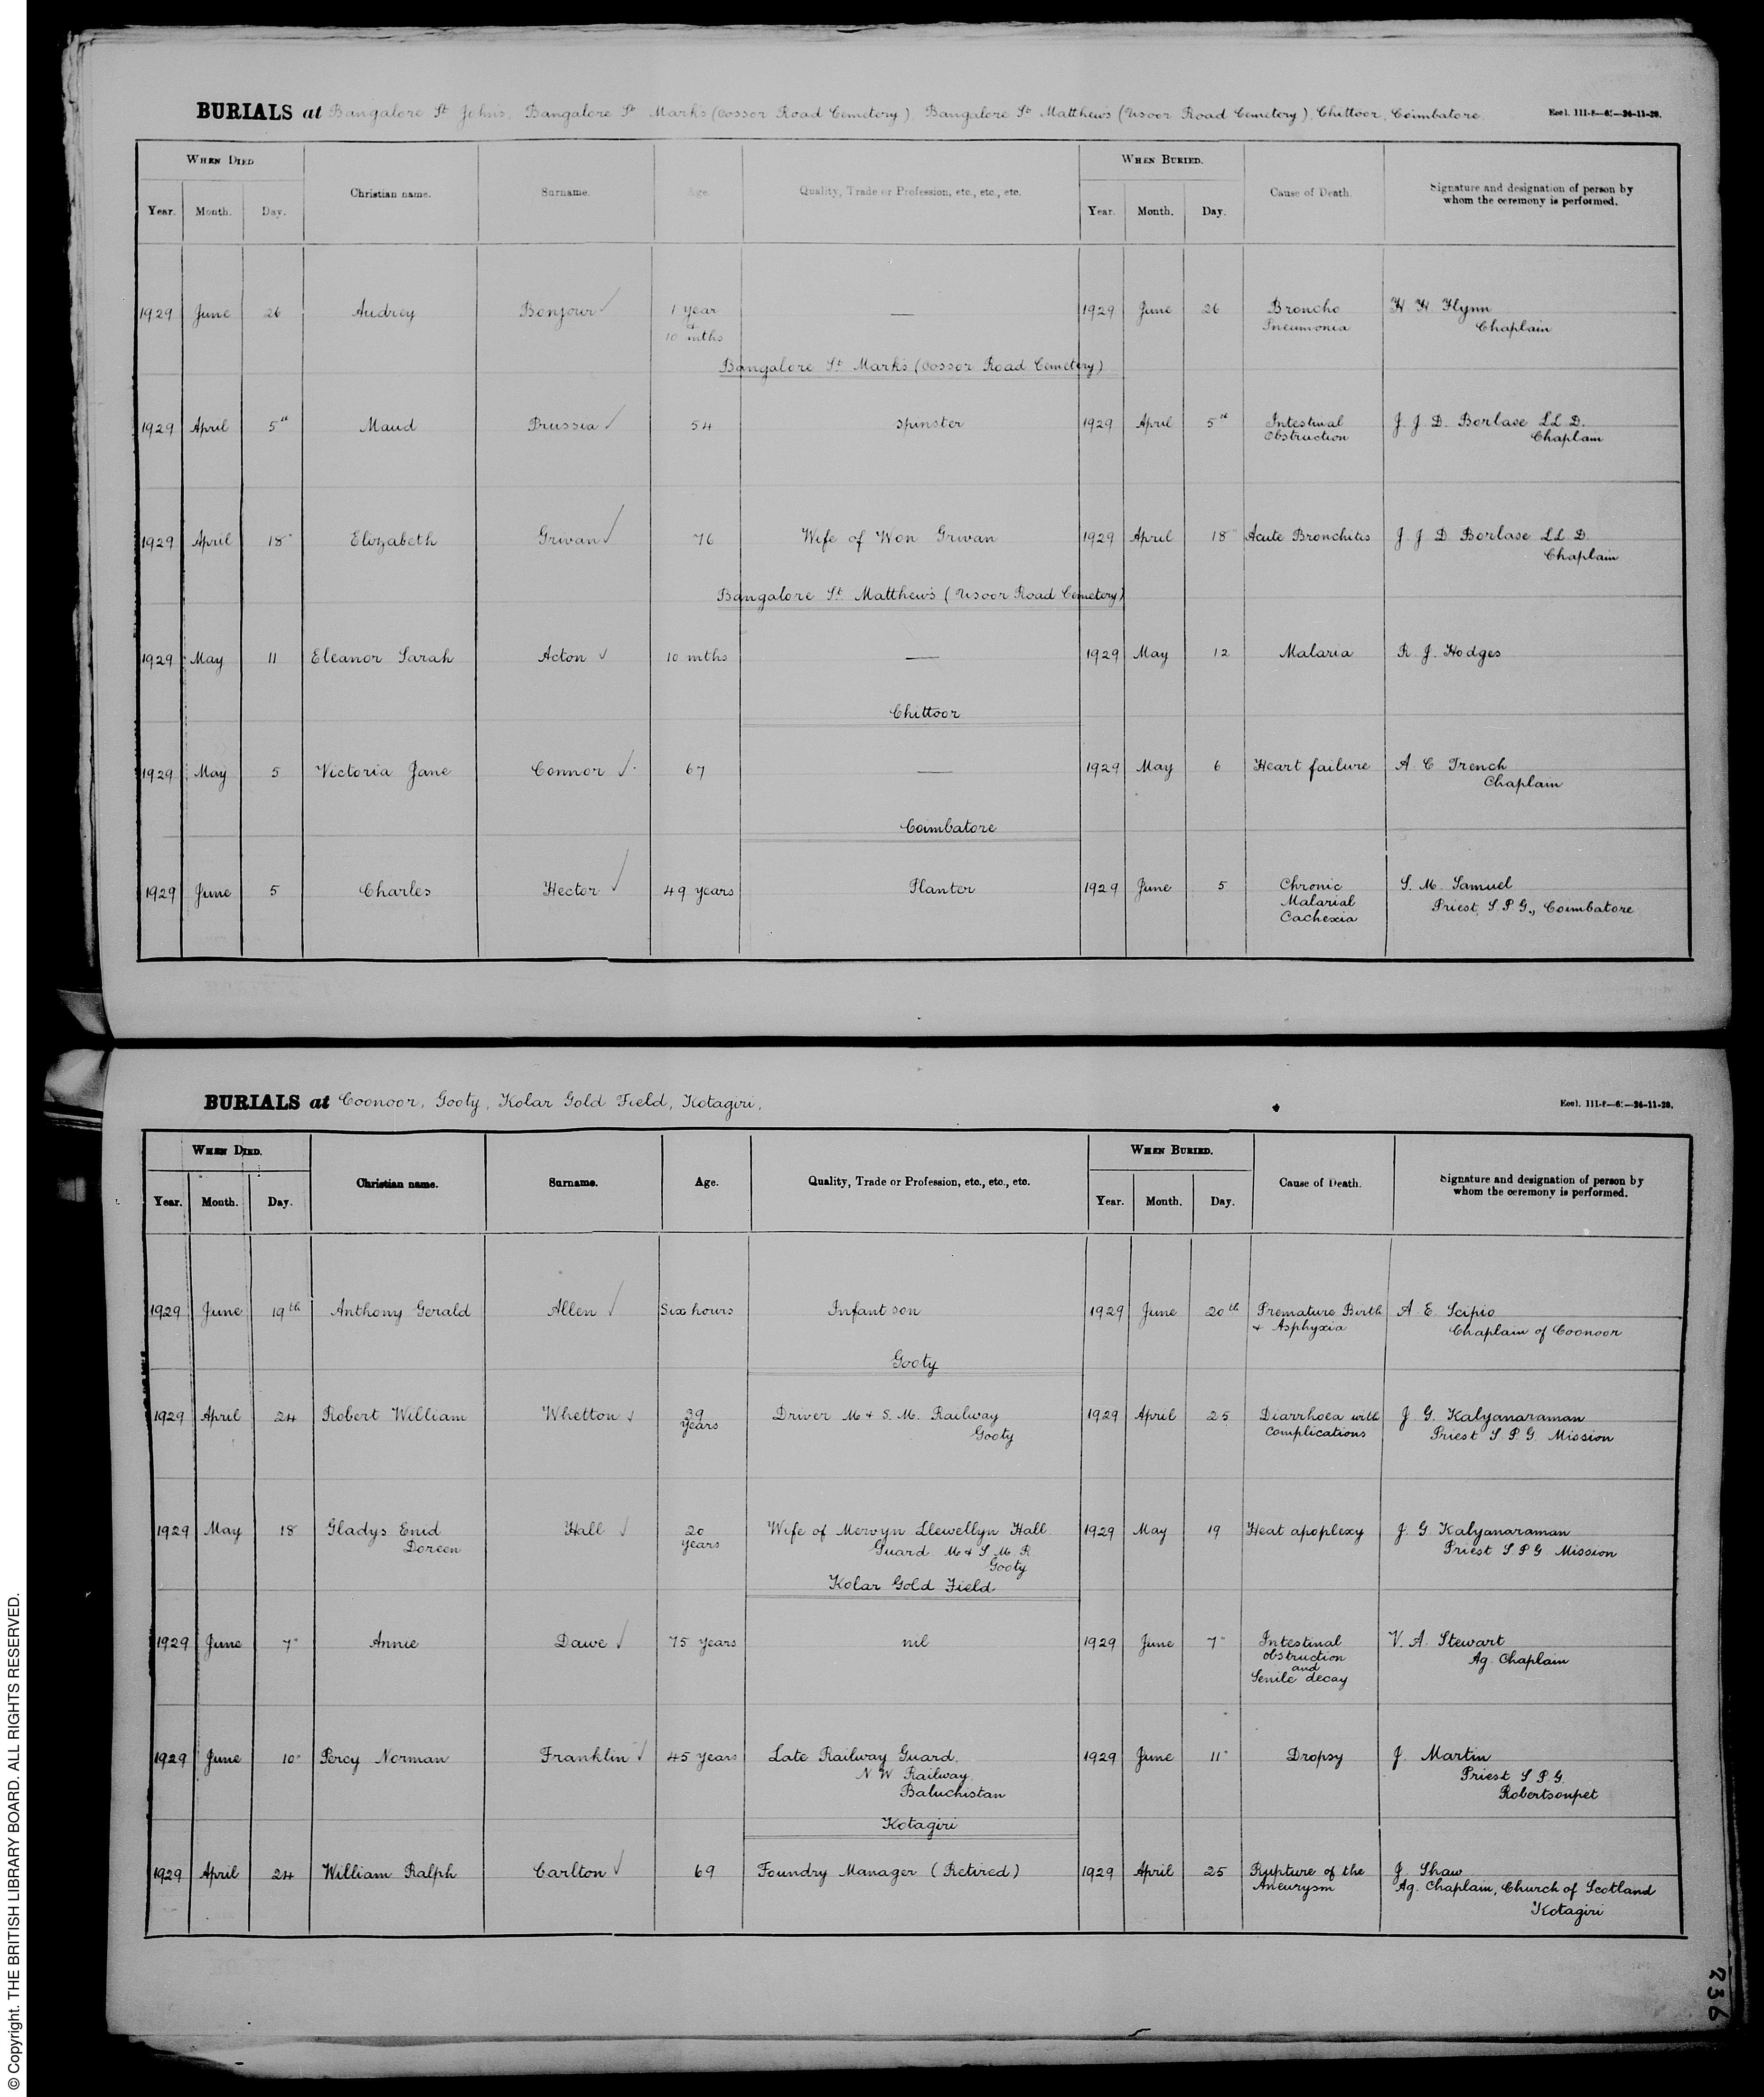 BURIALS at Bangalore St John's, Bangalore St Mark's (Cossor Road Cemetery), Bangalore St Matthew's (Usoor Road Cemetery), Chittoor, Coimbatore. Eccl. III-8—6.—26-11-28.
WHEN DIED WHEN BURIED.
Christian name. Surname. Age. Quality, Trade or Profession, etc., etc., etc. Cause of Death. Signature and designation of person by
whom the ceremony is performed.
Year. Month. Day. Year. Month. Day.
1929 June 26 Audrey Bonjour ✓ 1 year — 1929 June 26 Broncho H. H. Flynn
& Pneumonia Chaplain
10 mths
Bangalore St Mark's (Cossor Road Cemetery)
1929 April 5th Maud Prussia ✓ 54 Spinster 1929 April 5th Intestinal J. J. D. Borlase LL. D.
Obstruction Chaplain
1929 April 18" Elizabeth Griwan ✓ 76 Wife of Won Griwan 1929 April 18" Acute Bronchitis J. J. D. Borlase LL. D.
Chaplain
Bangalore St Matthew's (Usoor Road Cemetery)
1929 May 11 Eleanor Sarah Acton ✓ 10 mths — 1929 May 12 Malaria R. J. Hodges
Chittoor
1929 May 5 Victoria Jane Connor ✓ 67 — 1929 May 6 Heart failure A. C. Trench
Chaplain
Coimbatore
1929 June 5 Charles Hector ✓ 49 years Planter 1929 June 5 Chronic S. M. Samuel
Malarial Priest, S.P.G., Coimbatore
Cachexia
BURIALS at Coonoor, Gooty, Kolar Gold Field, Kotagiri, Eccl. III-8—6.—26-11-28.
WHEN DIED. WHEN BURIED.
Christian name. Surname. Age. Quality, Trade or Profession, etc., etc., etc. Cause of Death. Signature and designation of person by
whom the ceremony is performed.
Year. Month. Day. Year. Month. Day.
1929 June 19th Anthony Gerald Allen ✓ Six hours Infant son 1929 June 20th Premature Birth A. E. Scipio
& Asphyxia Chaplain of Coonoor
Gooty
1929 April 24 Robert William Whetton ✓ 39 Driver M & S. M. Railway 1929 April 25 Diarrhoea with J. G. Kalyanaraman
years Gooty complications Priest S.P.G. Mission
1929 May 18 Gladys Enid Hall ✓ 20 Wife of Mervyn Llewellyn Hall 1929 May 19 Heat apoplexy J. G. Kalyanaraman
Doreen years Guard M & S. M. R. Priest S.P.G. Mission
Gooty
Kolar Gold Field
1929 June 7" Annie Dawe ✓ 75 years nil 1929 June 7" Intestinal V. A. Stewart
obstruction Ag. Chaplain
and
Senile decay
1929 June 10" Percy Norman Franklin ✓ 45 years Late Railway Guard, 1929 June 11" Dropsy J. Martin
N. W. Railway Priest S.P.G.
Baluchistan Robertsonpet
Kotagiri
1929 April 24 William Ralph Carlton ✓ 69 Foundry Manager (Retired) 1929 April 25 Rupture of the J. Shaw
Aneurysm Ag. Chaplain, Church of Scotland
Kotagiri
236
© Copyright. THE BRITISH LIBRARY BOARD. ALL RIGHTS RESERVED.